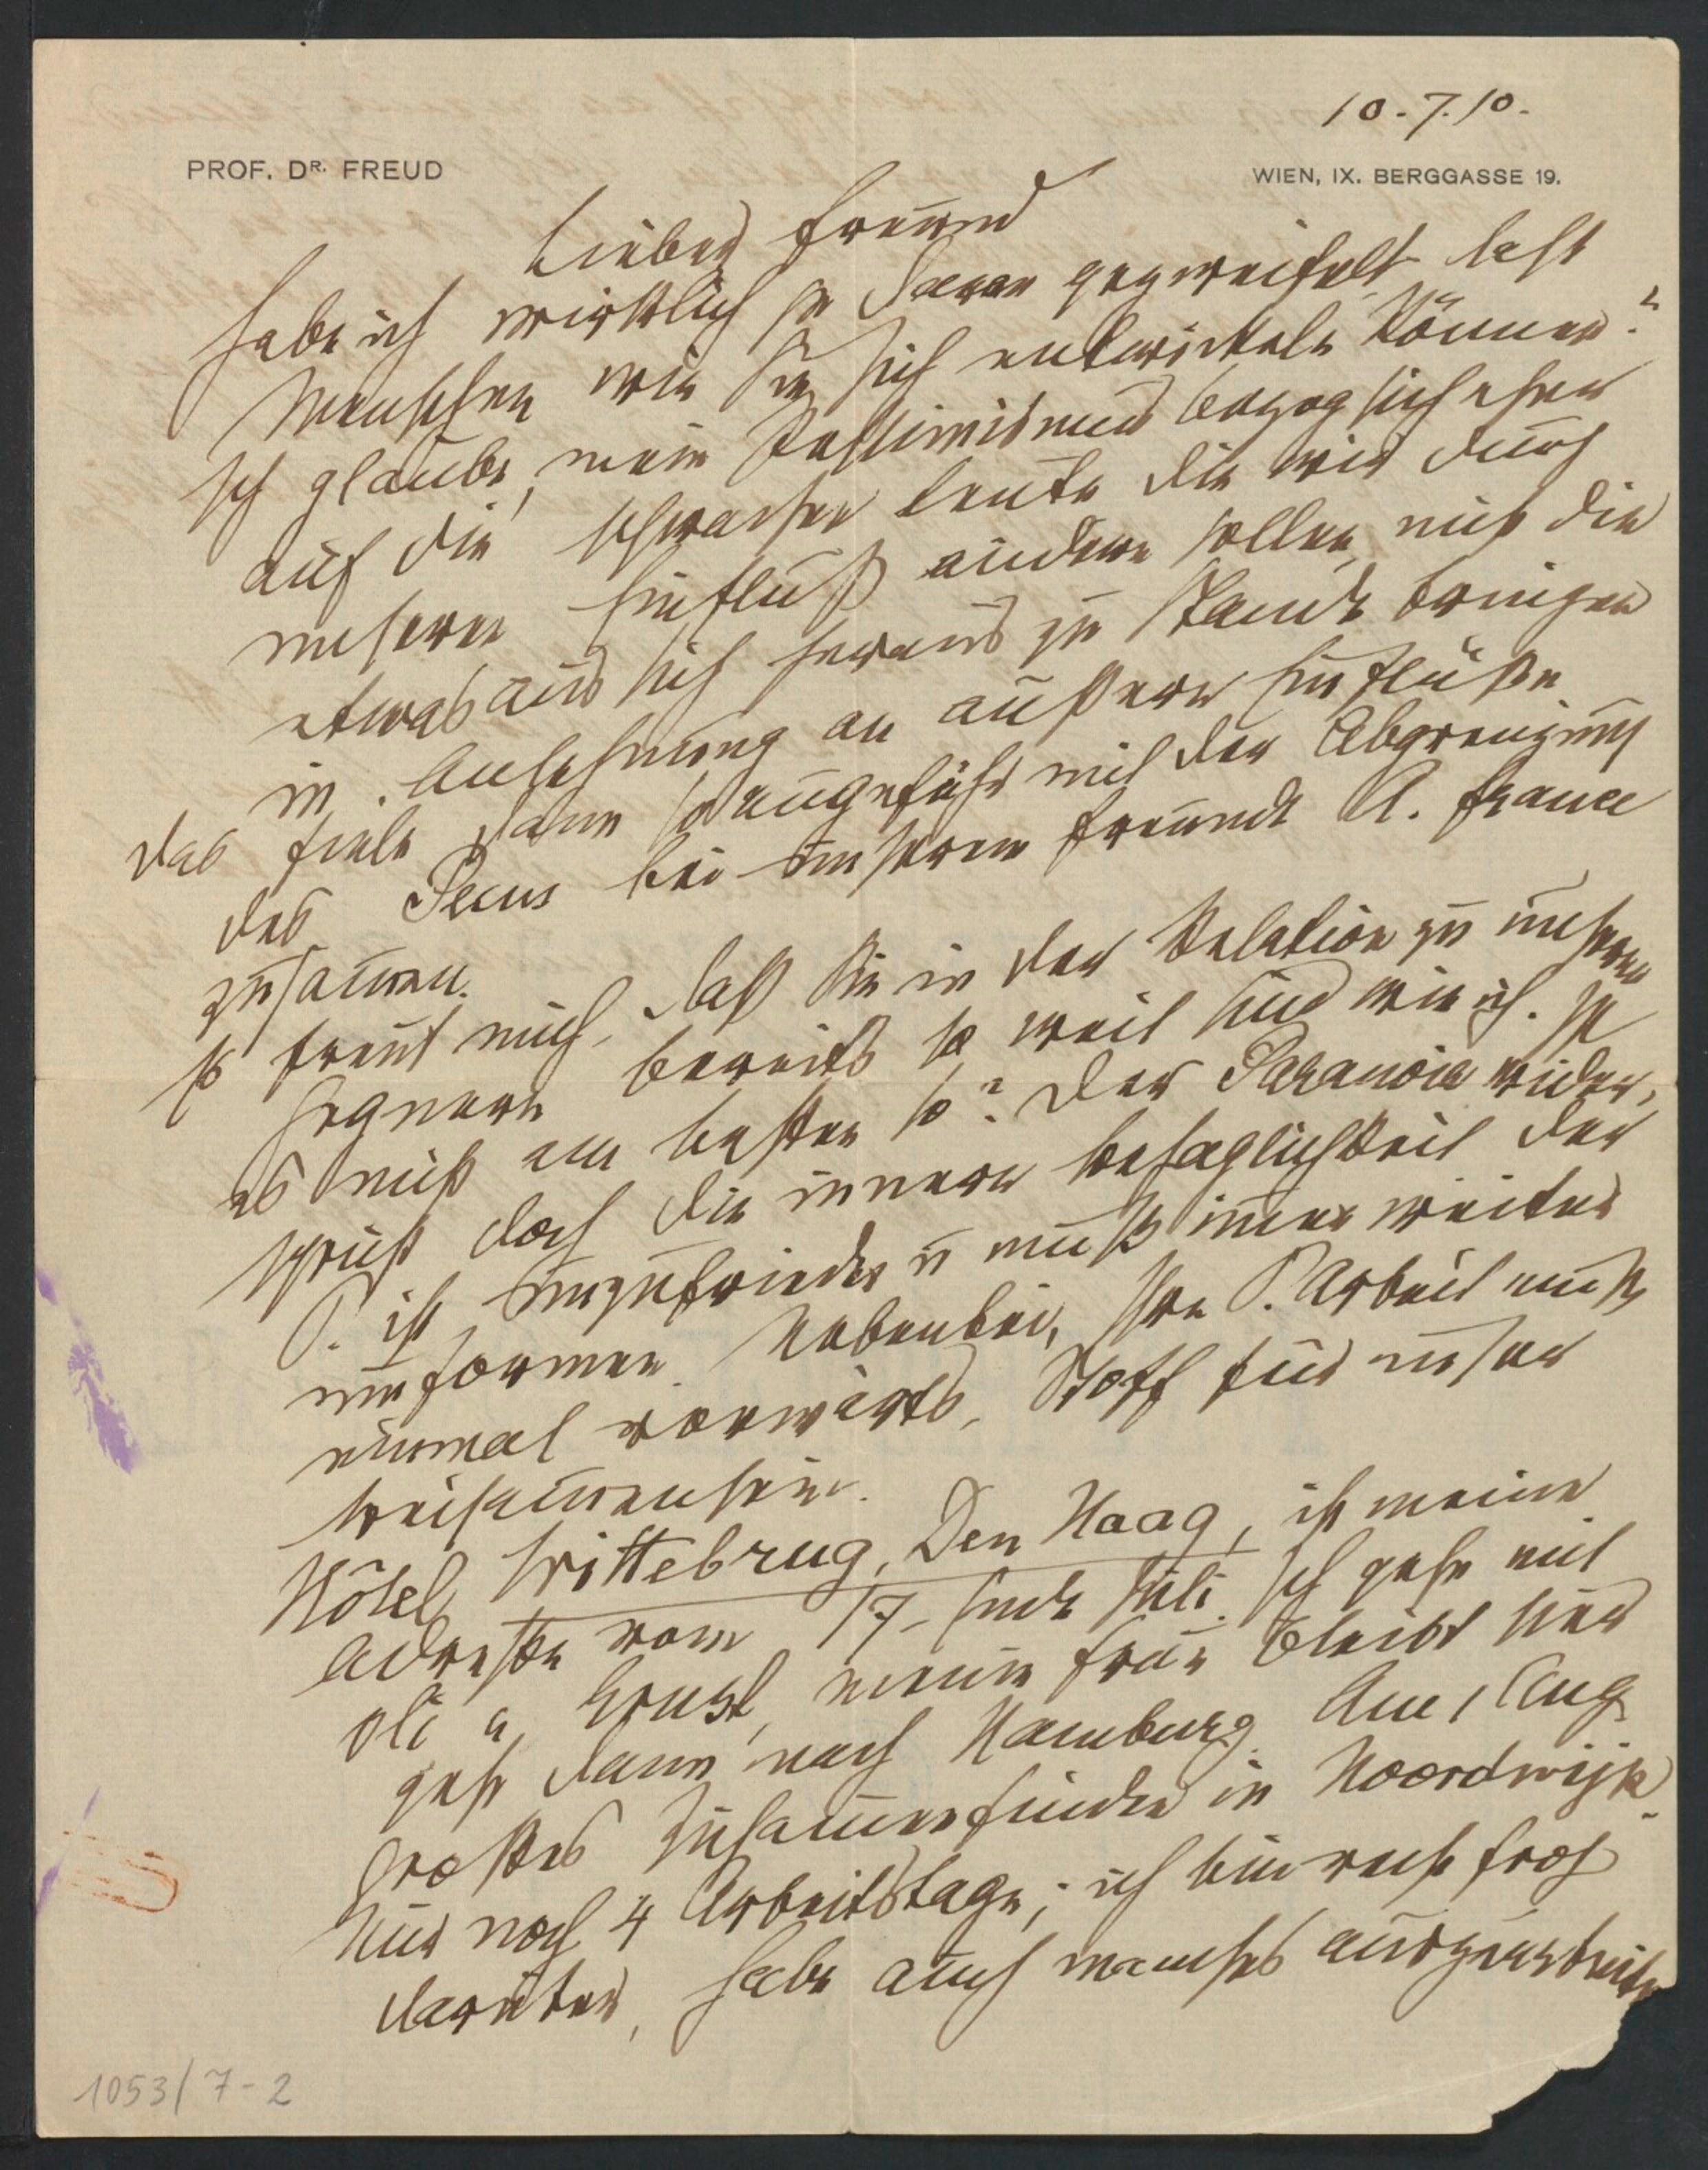 10.7.10.
PROF. DR. FREUD
WIEN, IX. BERGGASSE 19.
Lieber Freund
Habe ich wirklich je daran gezweifelt daß
Menschen wie Sie sich entwickeln können?
Ich glaube, mein Pessimismus bezog sich eher
auf die schwachen Leute die wir durch
unseren Einfluß ändern sollen, nicht die
etwas aus sich heraus zu Stande bringen
in Anlehnung an äußere Einflüße.
Das fiele dann so ungefähr mit der Abgrenzung
des Pecus bei unserem Freunde A. France
zusamen.
Es freut mich, daß Sie in der Relation zu unseren
Gegnern bereits so weit sind wie ich. Ist
es nicht am besten so? Der Paranoia wider,
spricht doch die innere Behaglichkeit der
P. ist unzufrieden u muß imer weiter
umformen. Nebenbei, Ihre P. Arbeit muß
einmal vorwärts, Stoff für unser
Beisamensein.
Hôtel Wittebrug, Den Haag, ist meine
Adresse vom 17 – Ende Juli. Ich gehe mit
Oli u Ernst, meine Frau bleibt hier
geht dann nach Hamburg. Am 1 Aug
großes Zusamenfinden in Noordwijk.
Nur noch 4 Arbeitstage; ich bin recht froh
darüber, habe auch manches ausgearbeitet
1053/7-2